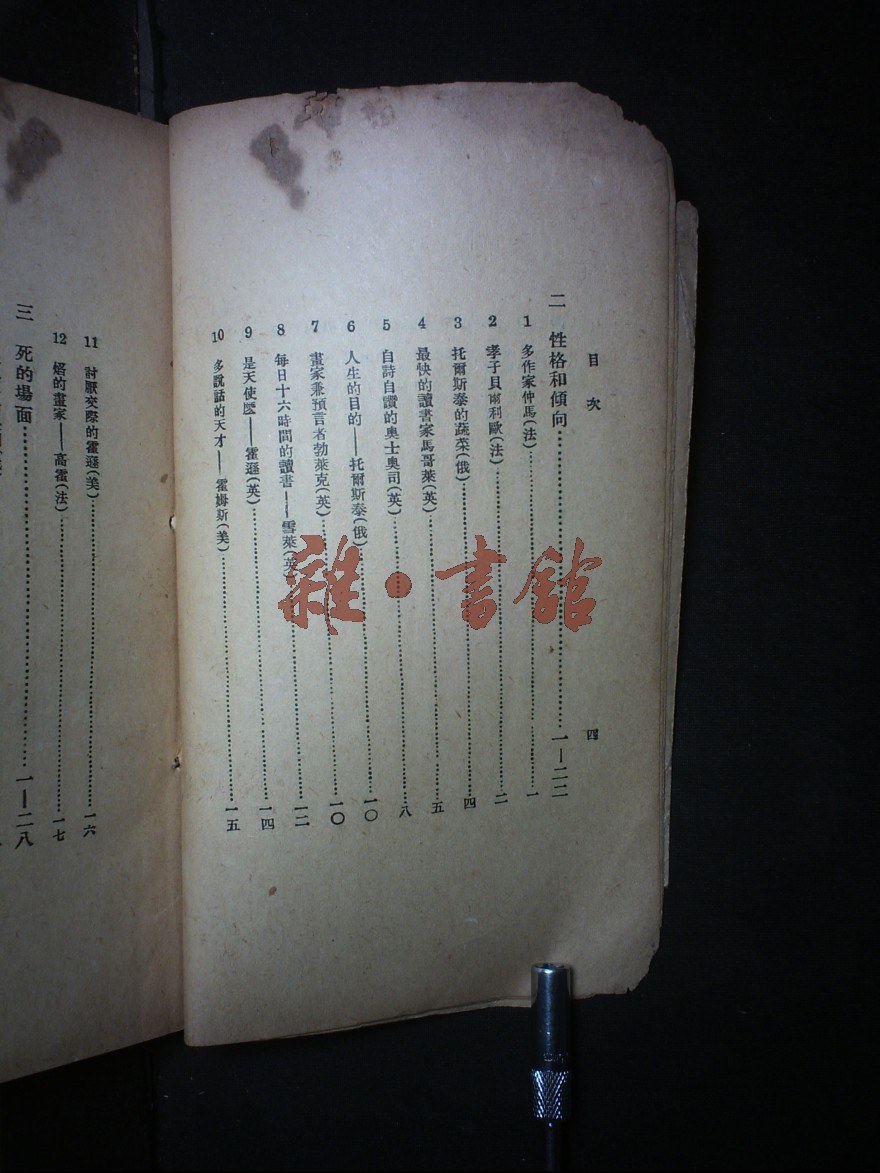 目次
四
二 性格和傾向 一—二二
1 多作家仲馬(法) 一
2 孝子貝爾利歐(法) 二
3 托爾斯泰的蔬菜(俄) 四
4 最快的讀書家馬哥萊(英) 五
5 自詩自讚的奧士奧司(英) 八
6 人生的目的——托爾斯泰(俄) 一〇
7 畫家兼預言者勃萊克(英) 一〇
8 每日十六時間的讀書——雪萊(英) 一二
9 是天使麽——霍遜(英) 一四
10 多說話的天才——霍姆斯(美) 一五
11 討厭交際的霍遜(美) 一六
12 焰的畫家——高霍(法) 一七
三 死的場面 一—二八
雜·書館